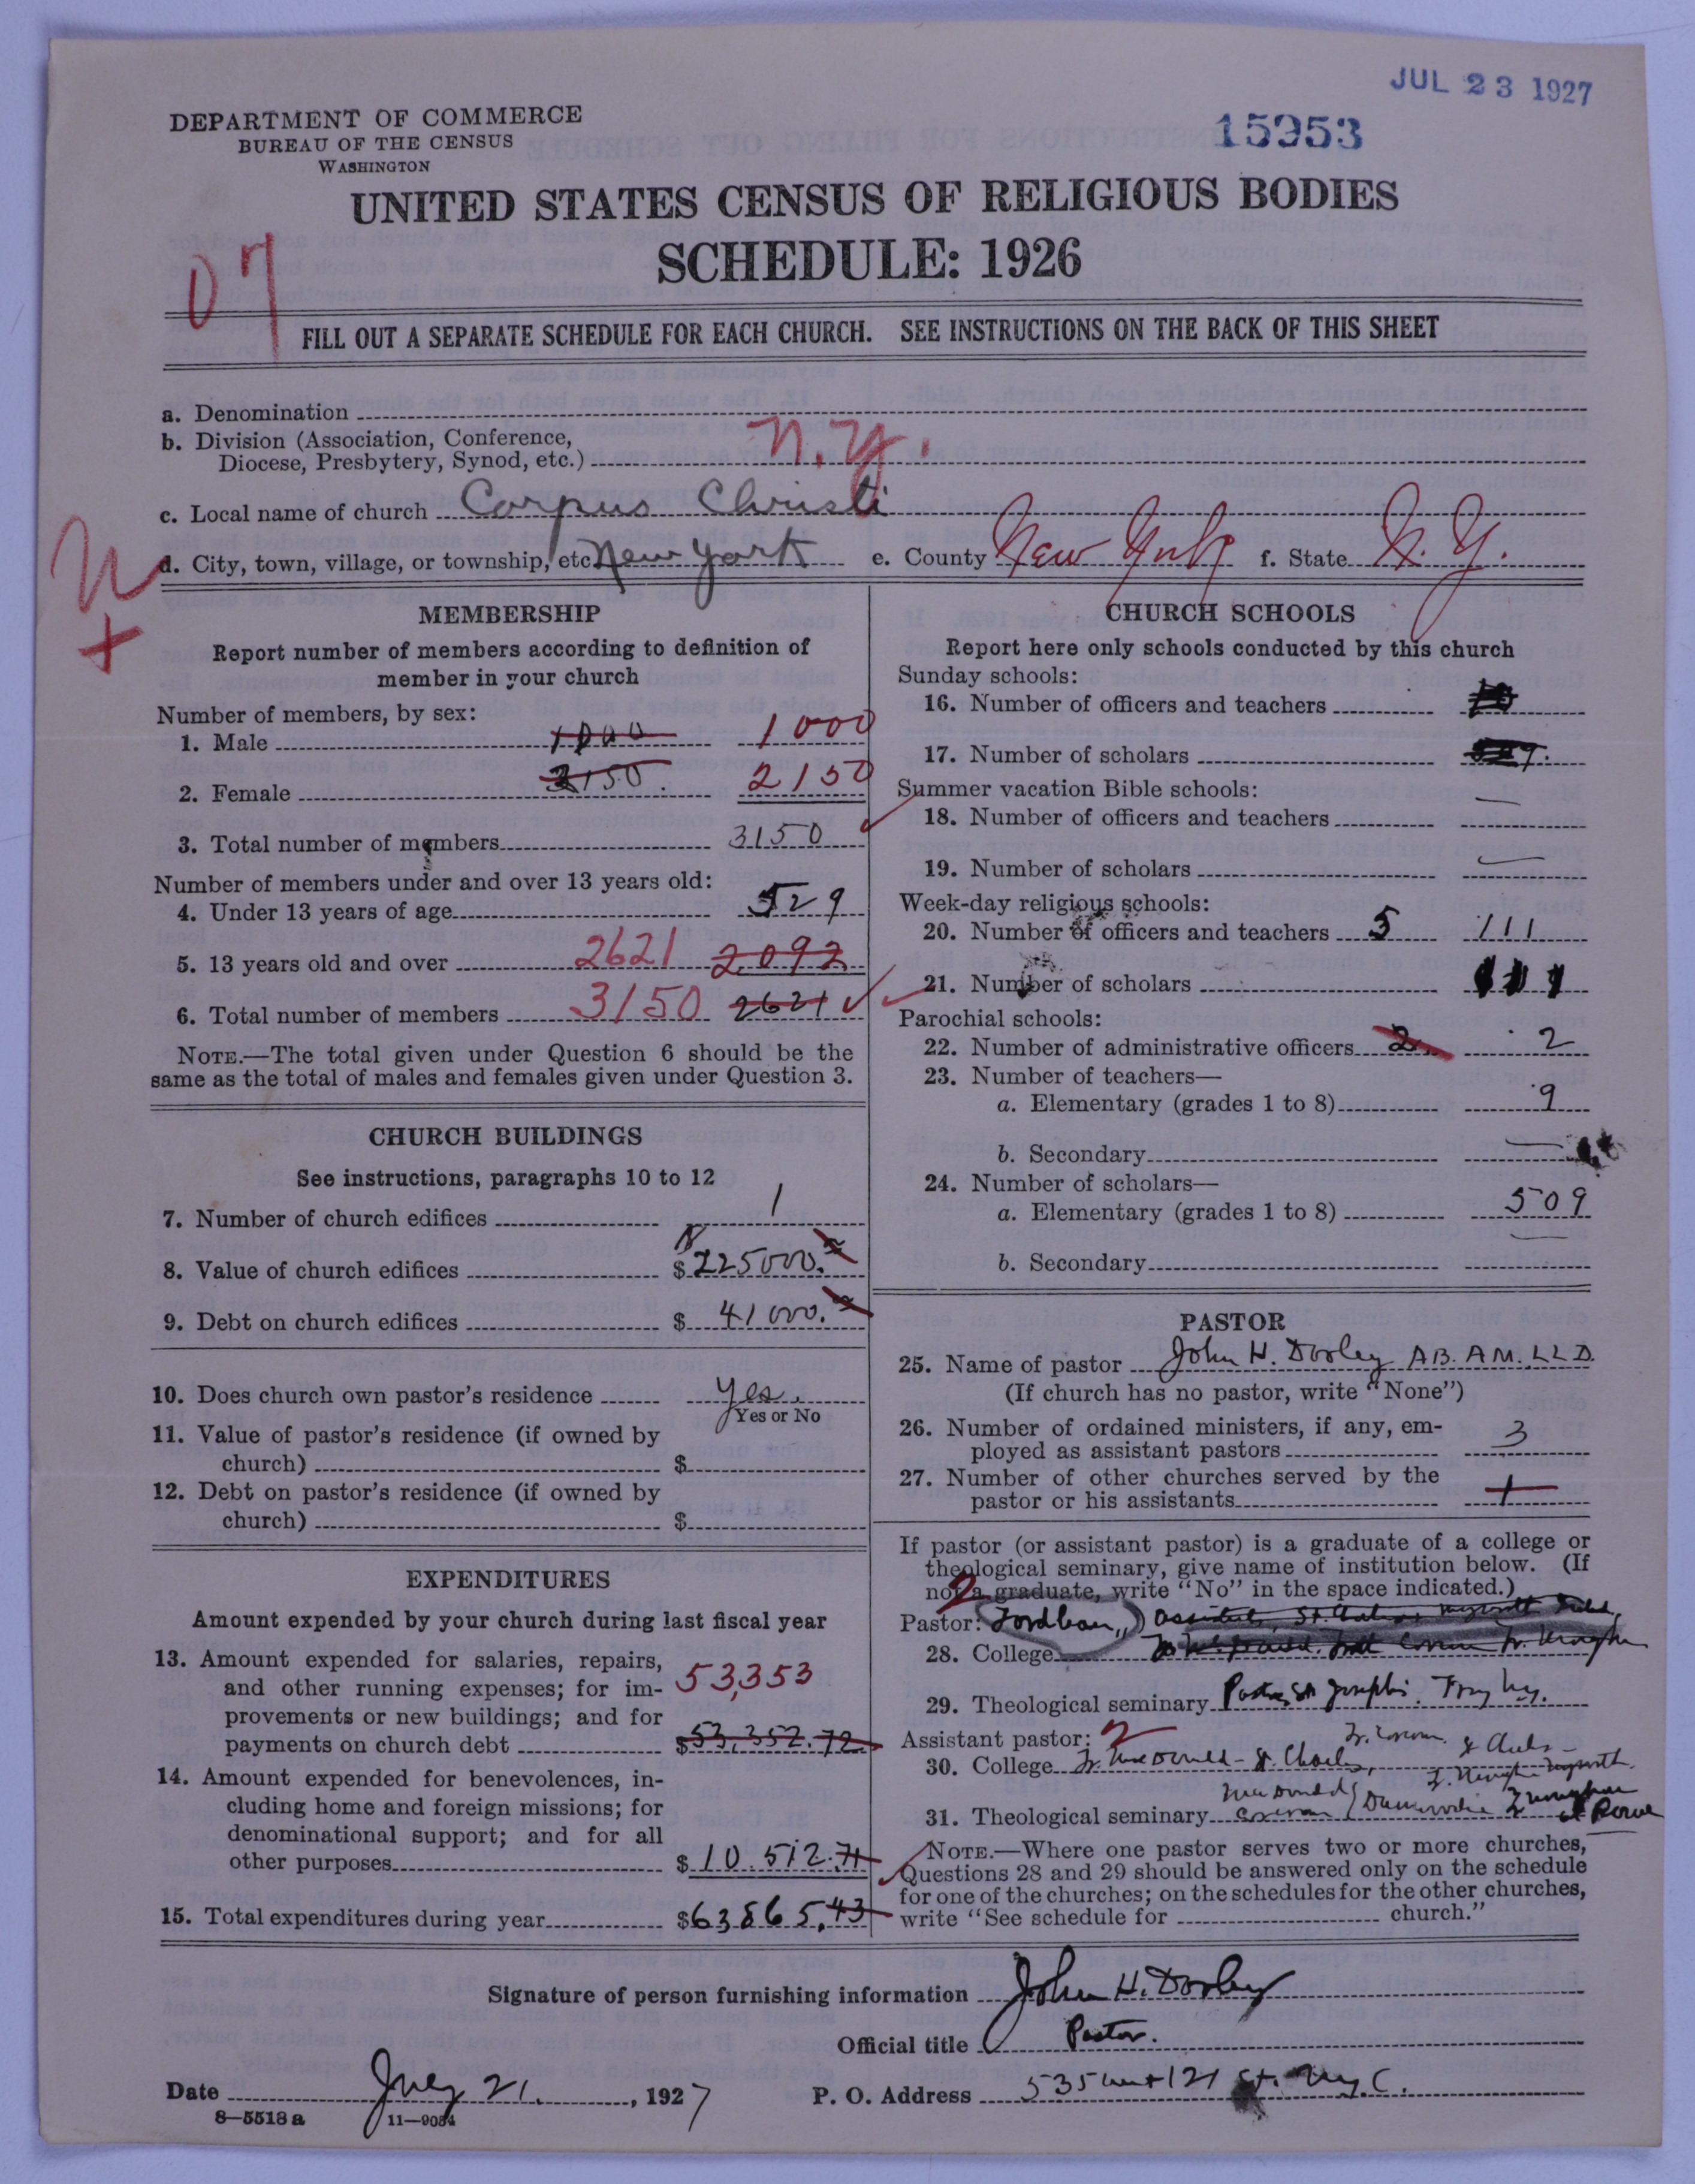 JUL 23 1927
15953
DEPARTMENT OF COMMERCE
BUREAU OF THE CENSUS
WASHINGTON
UNITED STATES CENSUS OF RELIGIOUS BODIES
SCHEDULE: 1926
07
FILL OUT A SEPARATE SCHEDULE FOR EACH CHURCH. SEE INSTRUCTIONS ON THE BACK OF THIS SHEET
a. Denomination
b. Division (Association, Conference,
Diocese, Presbytery, Synod, etc.) N.Y.
c. Local name of church Corpus Christi
d. City, town, village, or township, etc. New York e. County New York f. State N.Y.
MEMBERSHIP
Report number of members according to definition of
member in your church
Number of members, by sex:
1. Male 1000 1000
2. Female 2150. 2150
3. Total number of members 3150
Number of members under and over 13 years old:
4. Under 13 years of age 529
5. 13 years old and over 2621 2092
6. Total number of members 3150 2621
NOTE.—The total given under Question 6 should be the
same as the total of males and females given under Question 3.
CHURCH BUILDINGS
See instructions, paragraphs 10 to 12
7. Number of church edifices 1
8. Value of church edifices $225000.
9. Debt on church edifices $41000.
10. Does church own pastor's residence Yes.
Yes or No
11. Value of pastor's residence (if owned by
church) $
12. Debt on pastor's residence (if owned by
church) $
EXPENDITURES
Amount expended by your church during last fiscal year
13. Amount expended for salaries, repairs,
and other running expenses; for im-
provements or new buildings; and for
payments on church debt 53,353 $53,352.72
14. Amount expended for benevolences, in-
cluding home and foreign missions; for
denominational support; and for all
other purposes $10.512.71
15. Total expenditures during year $63865.43
CHURCH SCHOOLS
Report here only schools conducted by this church
Sunday schools:
16. Number of officers and teachers
17. Number of scholars
Summer vacation Bible schools:
18. Number of officers and teachers —
19. Number of scholars —
Week-day religious schools:
20. Number of officers and teachers 5 111
21. Number of scholars
Parochial schools:
22. Number of administrative officers 2 2
23. Number of teachers—
a. Elementary (grades 1 to 8) 9
b. Secondary —
24. Number of scholars—
a. Elementary (grades 1 to 8) 509
b. Secondary —
PASTOR
25. Name of pastor John H. Dooley A.B. A.M. LL D.
(If church has no pastor, write "None")
26. Number of ordained ministers, if any, em-
ployed as assistant pastors 3
27. Number of other churches served by the
pastor or his assistants
If pastor (or assistant pastor) is a graduate of a college or
theological seminary, give name of institution below. (If
not a graduate, write "No" in the space indicated.)
Pastor: 2 Fordham
28. College
29. Theological seminary Pastor, St Josephs. Troy N.y.
Assistant pastor: 2
30. College Fr. McDonald - St. Charles,
31. Theological seminary McDonald
NOTE.—Where one pastor serves two or more churches,
Questions 28 and 29 should be answered only on the schedule
for one of the churches; on the schedules for the other churches,
write "See schedule for church."
Signature of person furnishing information John H. Dooley
Official title Pastor.
Date July 21, 1927 P. O. Address 535 West 121 St. N.y.C.
8—5518 a 11—9034